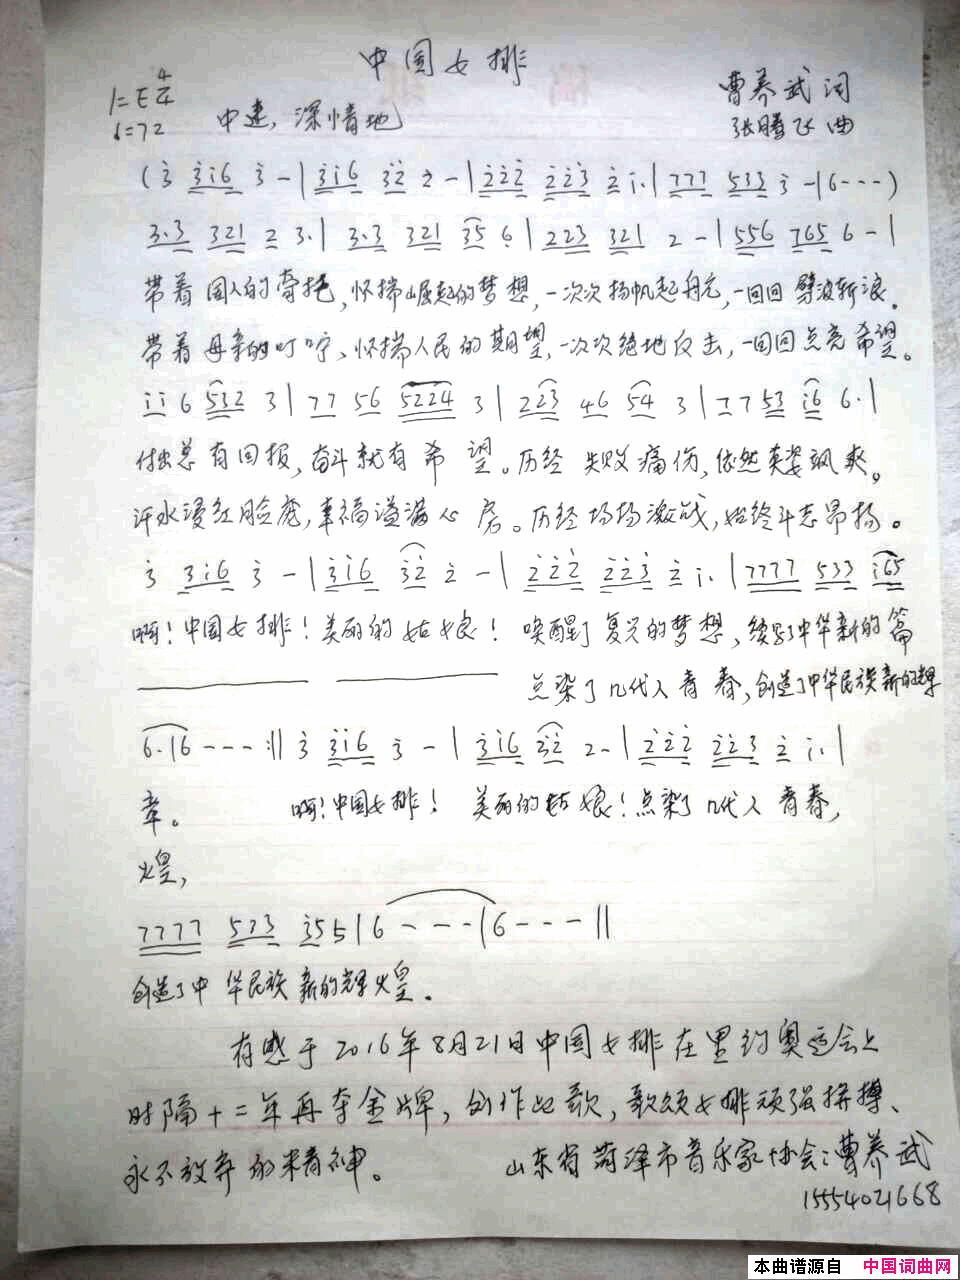 中国女排
1=E 4/4
♩=72
中速,深情地
曹养武词
张腾飞曲
(3 3i6 3 - | 3i6 32 2 - | 222 223 2 i. | 777 533 3 - | 6 - - - )
3.3 321 2 3. | 3.3 321 35 6 | 223 321 2 - | 556 765 6 - |
带着国人的牵挂,怀揣崛起的梦想,一次次扬帆起航,一回回劈波斩浪。
带着母亲的叮咛、怀揣人民的期望,一次次绝地反击,一回回点亮希望。
ii 6 532 3 | 77 56 5224 3 | 223 46 54 3 | 77 53 i6 6. |
付出总有回报,奋斗就有希望。历经失败痛伤,依然英姿飒爽。
汗水浸红脸庞,幸福溢满心房。历经场场激战,始终斗志昂扬。
3 3i6 3 - | 3i6 32 2 - | 222 223 2 i. | 7777 533 i65
啊!中国女排!美丽的姑娘!唤醒了复兴的梦想,续写了中华新的篇
点染了几代人青春,创造了中华民族新的辉
6. | 6 - - - :|| 3 3i6 3 - | 3i6 32 2 - | 222 223 2 i. |
章。 啊!中国女排!美丽的姑娘!点染了几代人青春,
煌,
7777 573 35 5 | 6 - - - | 6 - - - ||
创造了中华民族新的辉煌。
有感于2016年8月21日中国女排在里约奥运会上
时隔十二年再夺金牌,创作此歌,歌颂女排顽强拼搏、
永不放弃的精神。
山东省菏泽市音乐家协会:曹养武
15554021668
本曲谱源自 中国词曲网